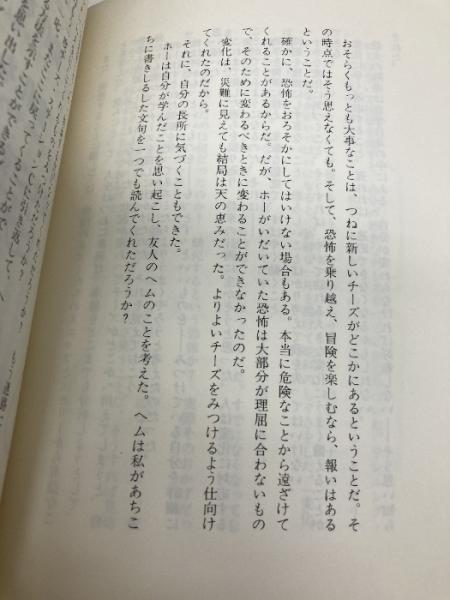 おそらくもっとも大事なことは、つねに新しいチーズがどこかにあるということだ。そ
の時点ではそう思えなくても。そして、恐怖を乗り越え、冒険を楽しむなら、報いはある
ということだ。
確かに、恐怖をおろそかにしてはいけない場合もある。本当に危険なことから遠ざけて
くれることがあるからだ。だが、ホーがいだいていた恐怖は大部分が理屈に合わないもの
で、そのために変わるべきときに変わることができなかったのだ。
変化は、災難に見えても結局は天の恵みだった。よりよいチーズをみつけるよう仕向け
てくれたのだから。
それに、自分の長所に気づくこともできた。
ホーは自分が学んだことを思い起こし、友人のヘムのことを考えた。ヘムは私があちこ
ちに書きしるした文句を一つでも読んでくれただろうか？